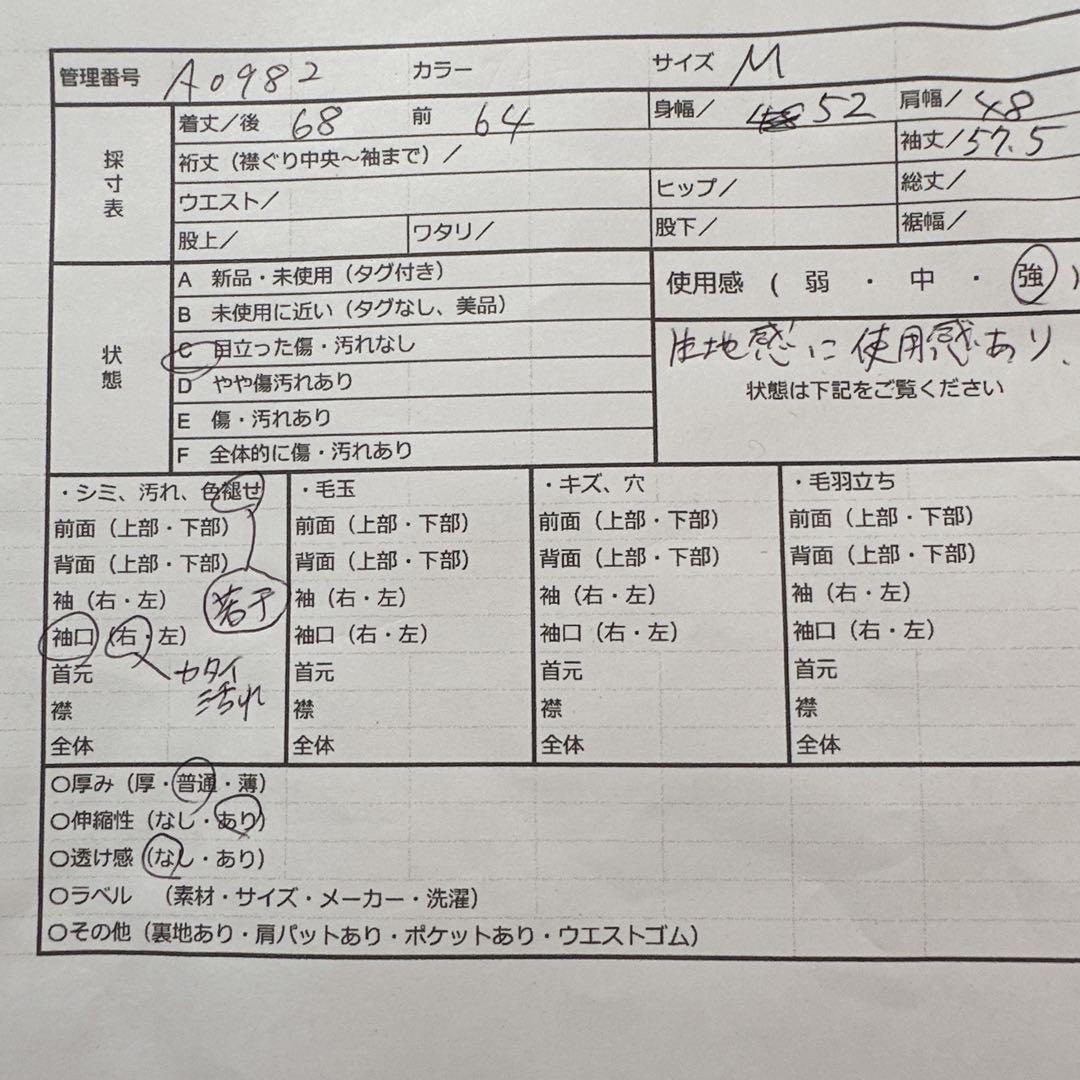 管理番号 A0982 カラー サイズ M
採寸表
着丈/後 68 前 64 身幅/ 52 肩幅/48
裄丈（襟ぐり中央〜袖まで）/ 袖丈/57.5
ウエスト/ ヒップ/ 総丈/
股上/ ワタリ/ 股下/ 裾幅/
状態
A 新品・未使用（タグ付き）
B 未使用に近い（タグなし、美品）
C 目立った傷・汚れなし
D やや傷汚れあり
E 傷・汚れあり
F 全体的に傷・汚れあり
使用感（弱・中・強）
生地感に使用感あり.
状態は下記をご覧ください
・シミ、汚れ、色褪せ
前面（上部・下部）
背面（上部・下部）
袖（右・左） 若干
袖口（右・左）
首元 カタイ
汚れ
襟
全体
・毛玉
前面（上部・下部）
背面（上部・下部）
袖（右・左）
袖口（右・左）
首元
襟
全体
・キズ、穴
前面（上部・下部）
背面（上部・下部）
袖（右・左）
袖口（右・左）
首元
襟
全体
・毛羽立ち
前面（上部・下部）
背面（上部・下部）
袖（右・左）
袖口（右・左）
首元
襟
全体
○厚み（厚・普通・薄）
○伸縮性（なし・あり）
○透け感（なし・あり）
○ラベル （素材・サイズ・メーカー・洗濯）
○その他（裏地あり・肩パットあり・ポケットあり・ウエストゴム）